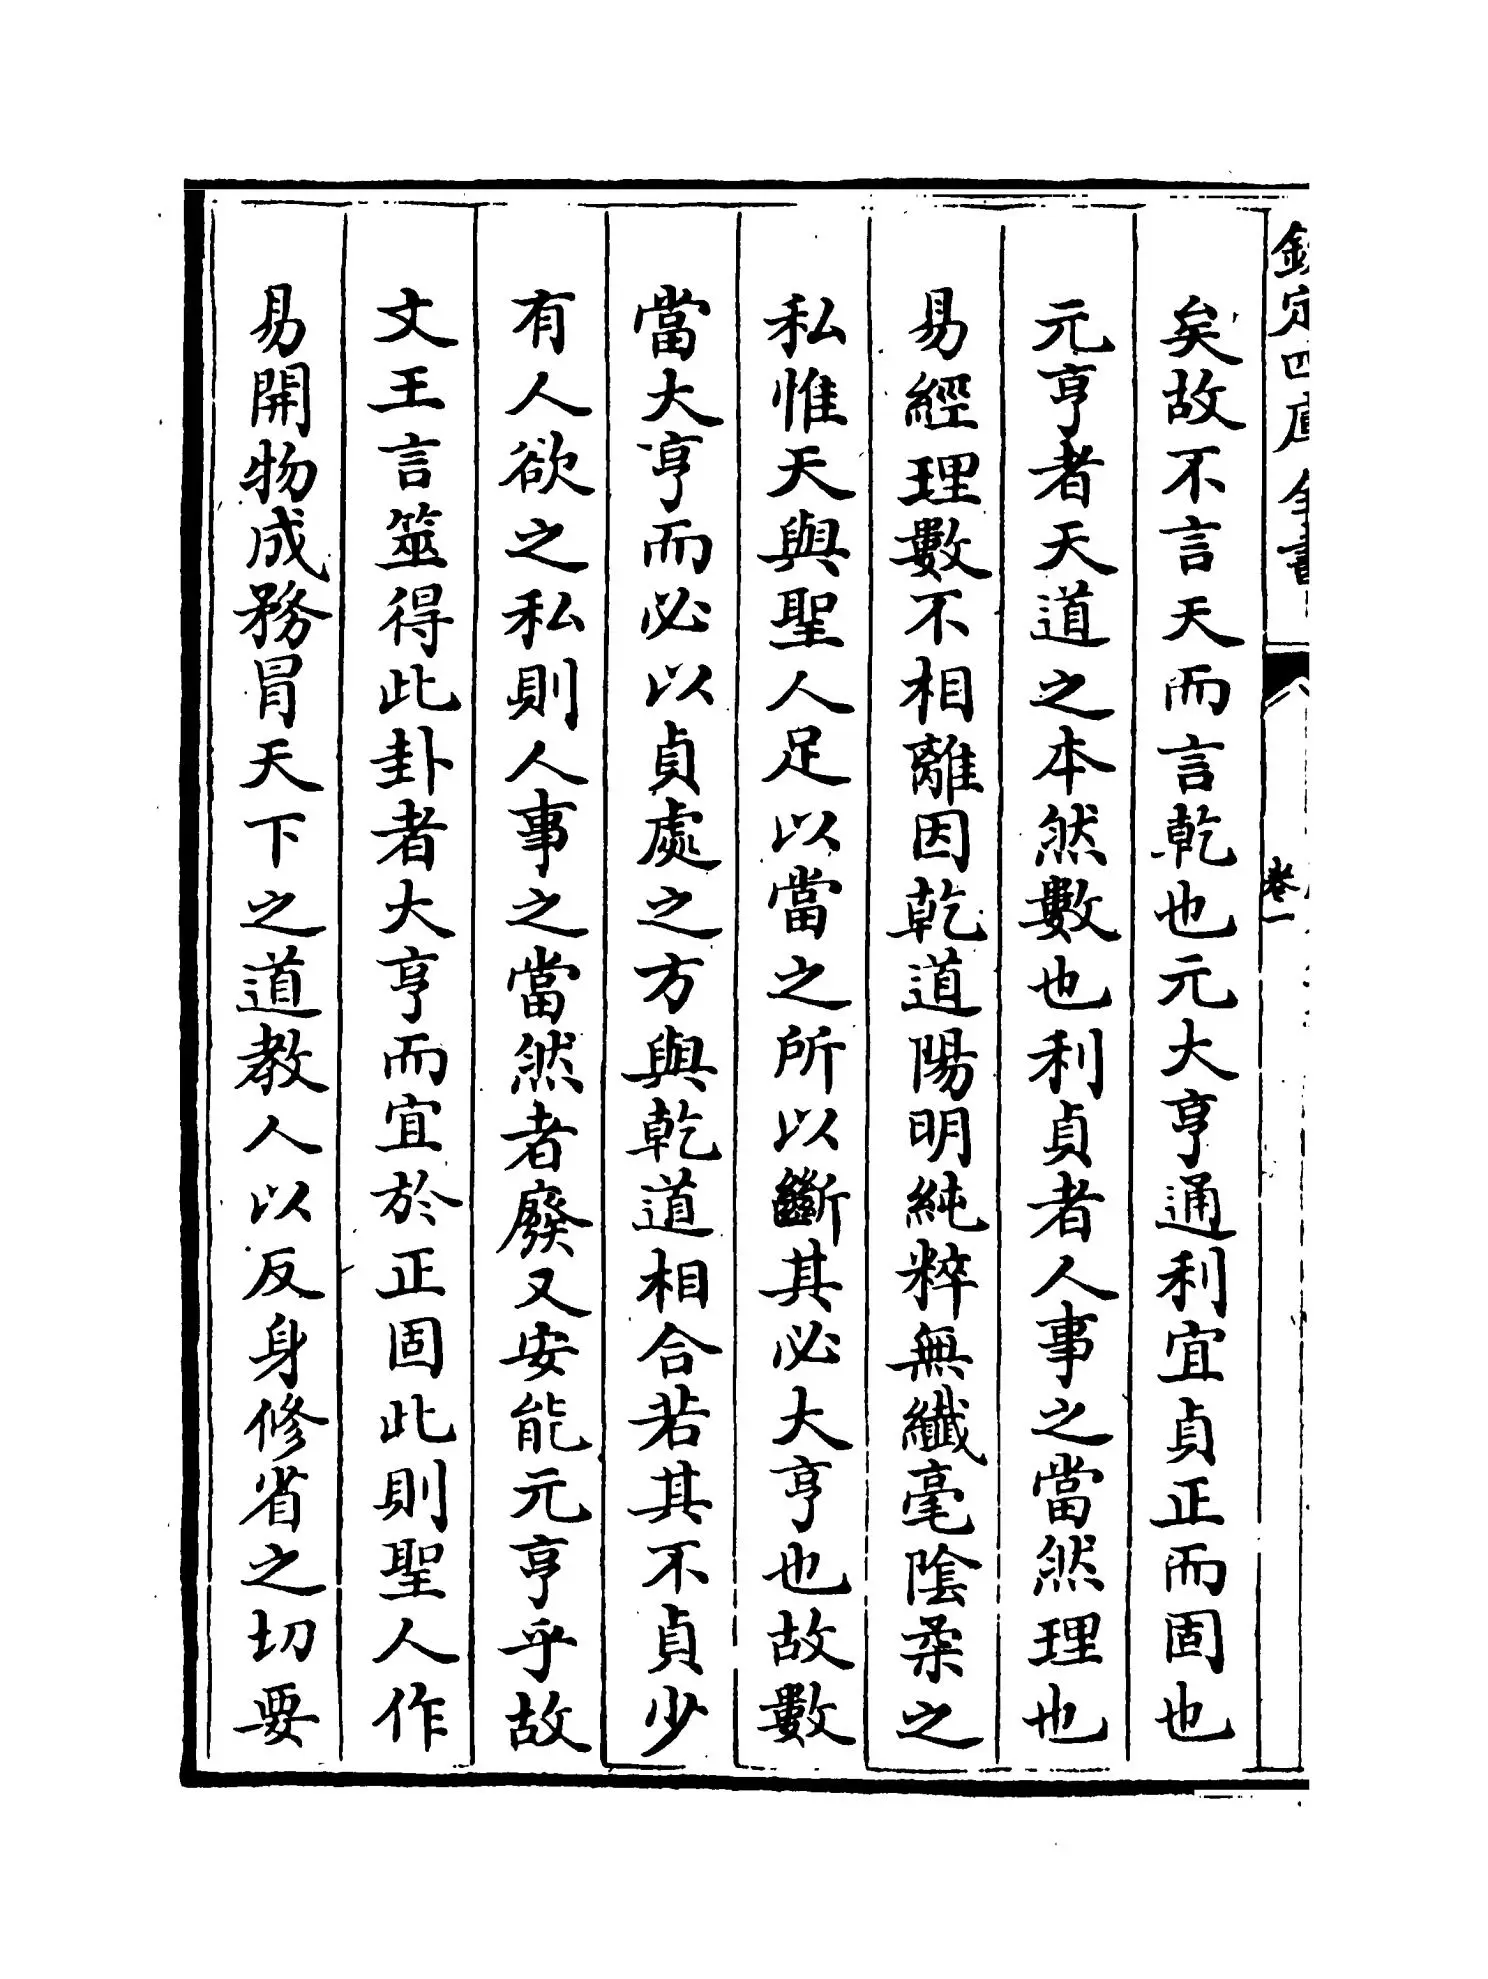 欽定四庫全書
卷一
矣故不言天而言乾也元大亨通利宜貞正而固也
元亨者天道之本然數也利貞者人事之當然理也
易經理數不相離因乾道陽明純粹無纖毫陰柔之
私惟天與聖人足以當之所以斷其必大亨也故數
當大亨而必以貞處之方與乾道相合若其不貞少
有人欲之私則人事之當然者廢又安能元亨乎故
文王言筮得此卦者大亨而宜於正固此則聖人作
易開物成務冐天下之道教人以反身修省之切要